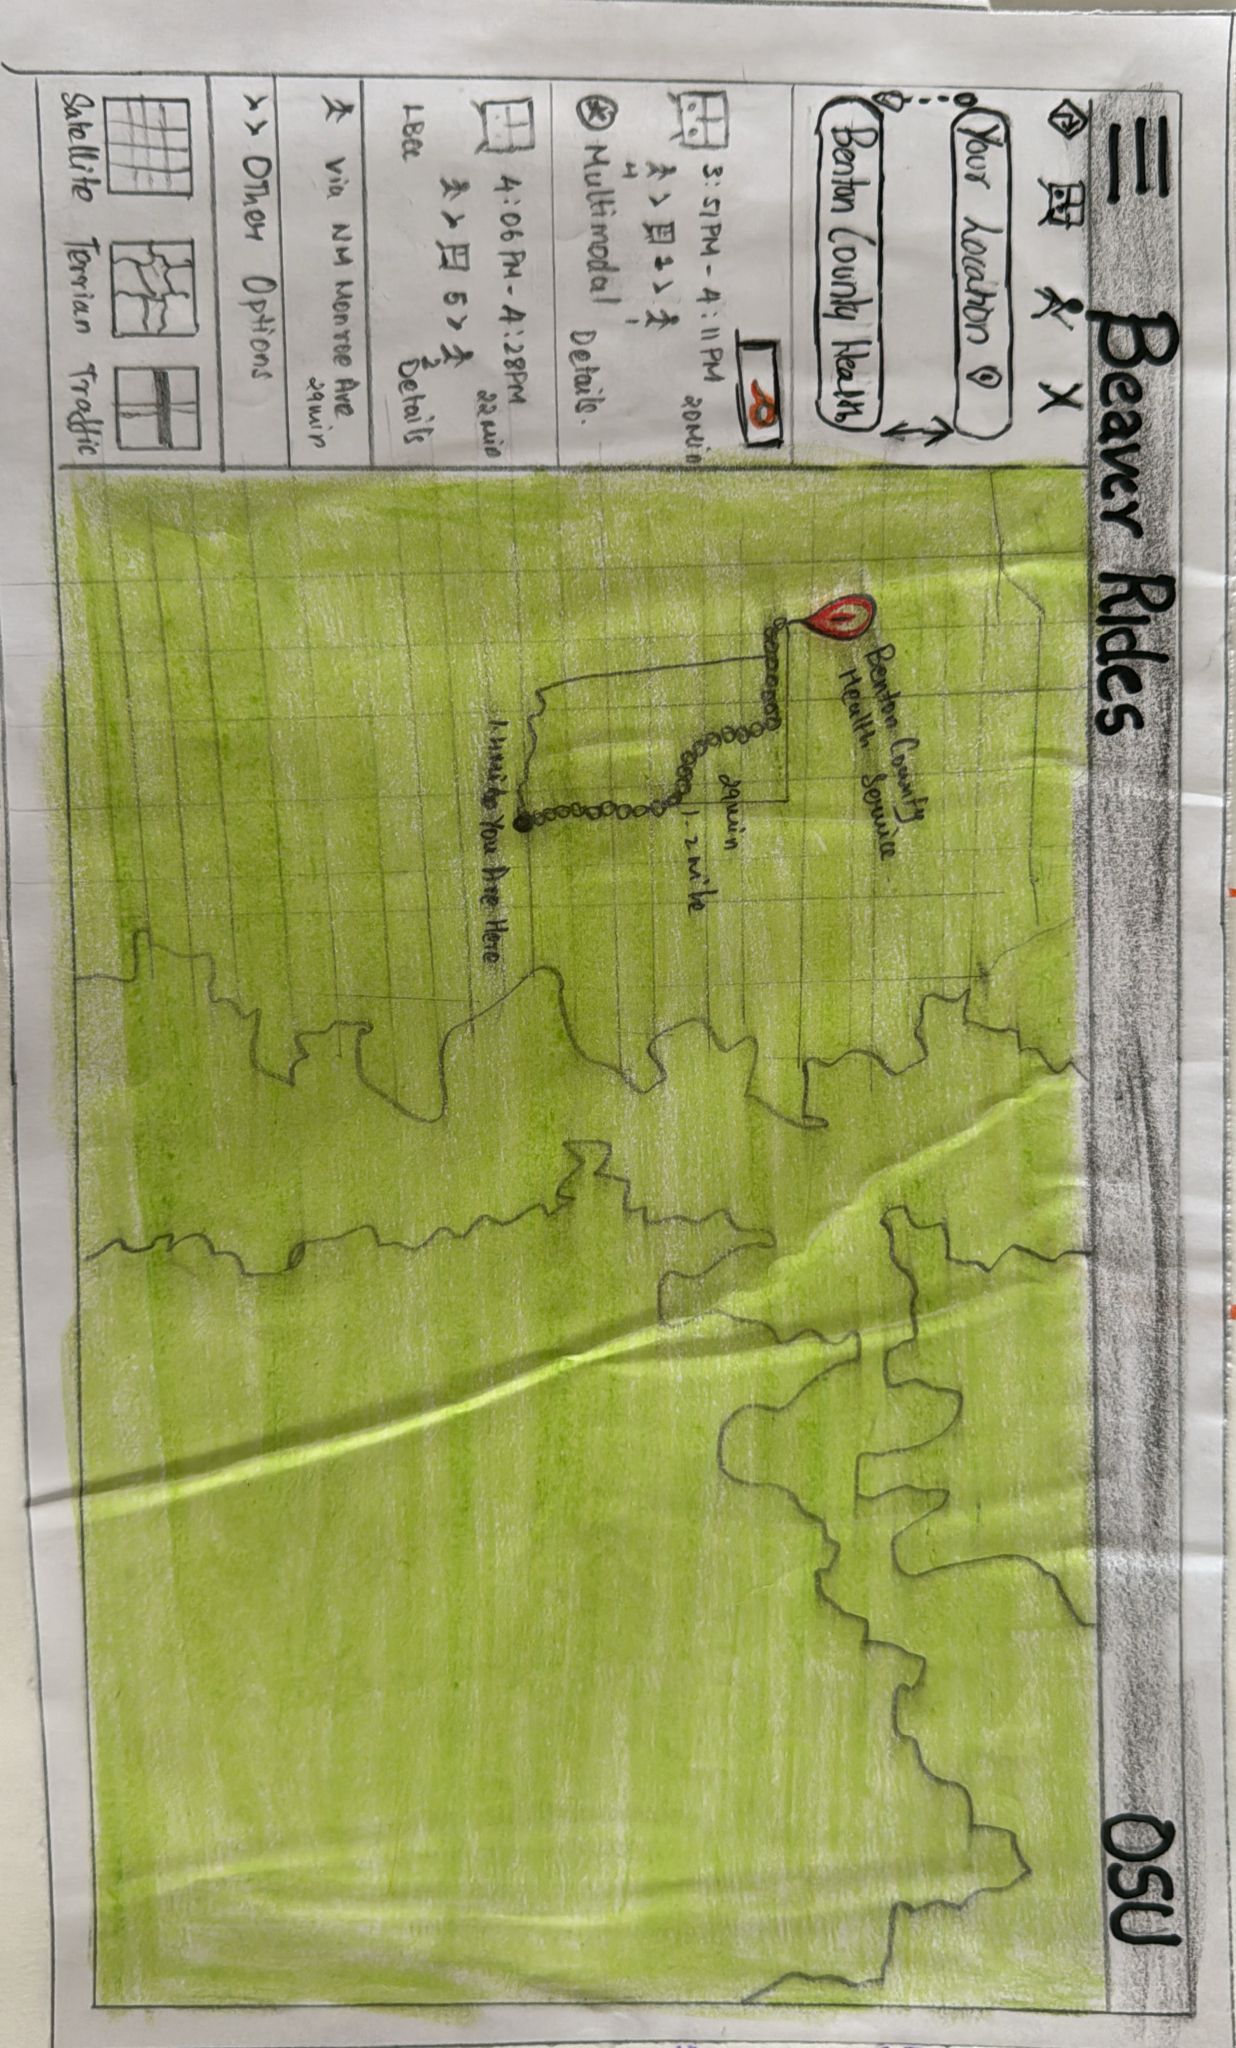 Beaver Rides
OSU
Your Location
Benton County Health
3:51PM - 4:11PM
20Min
2
4
1
Multimodal
Details.
4:06PM - 4:28PM
22Min
5
2
Details
via NM Monroe Ave
29min
>> Other Options
Satellite
Terrian
Traffic
Benton County
Health Service
29min
1.2 mile
You Are Here